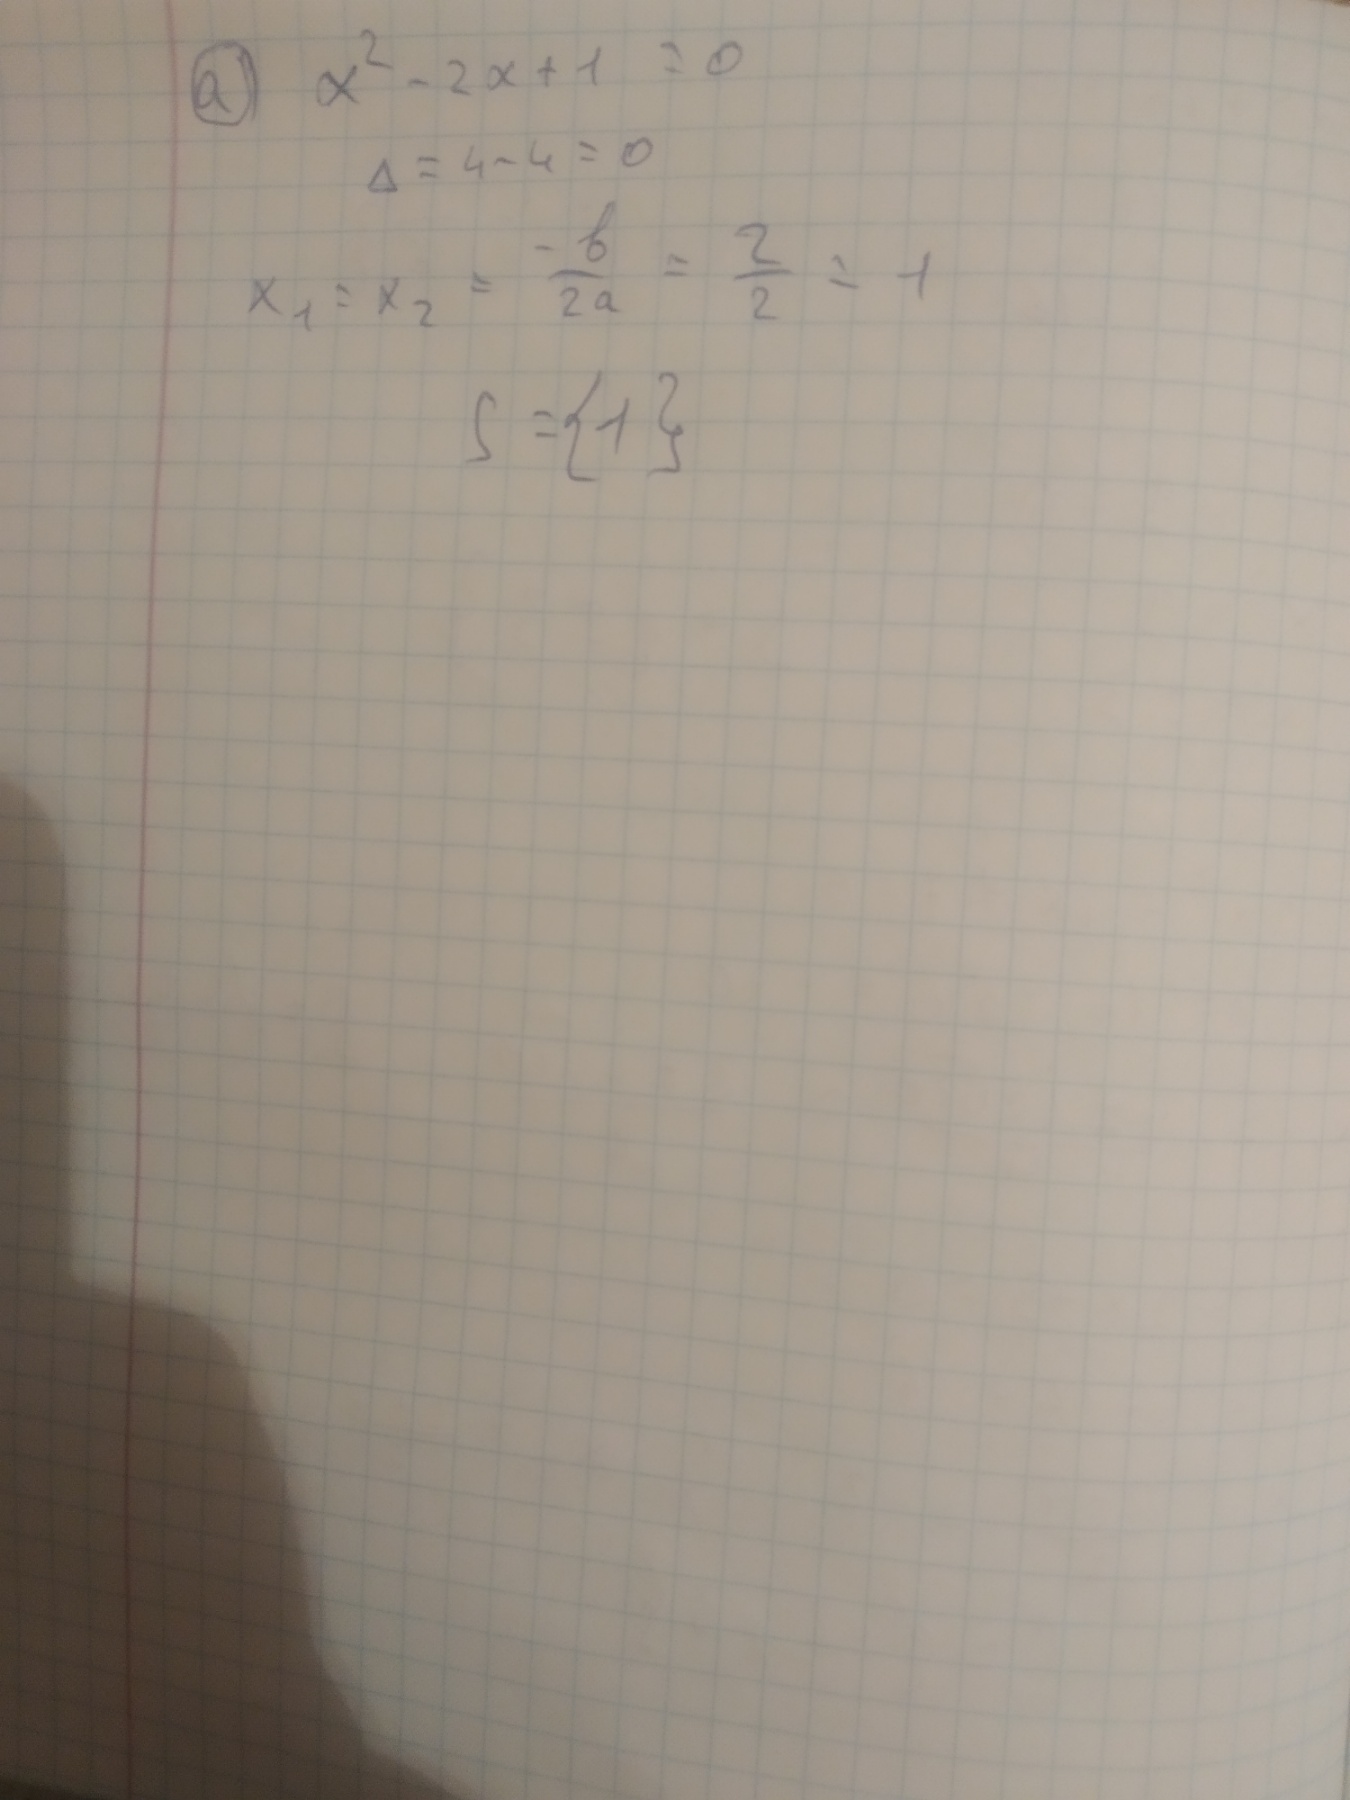 a) x² - 2x + 1 = 0
Δ = 4 - 4 = 0
x₁ = x₂ = -b/2a = 2/2 = 1
S = {1}